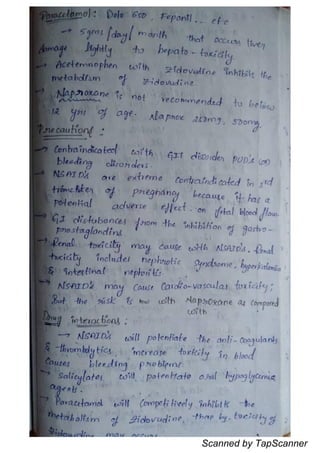 Paracetamol : Dolo 650, Fepanil... etc
→ 5 gms / day / month that occurs liver
damage lightly to hepato-toxicity
→ Acetaminophen with zidovudine inhibits the
metabolism of zidovudine.
→ Naproxane is not recommended to below
12 yrs of age. Naprox 250mg, 500mg
Precautions :
→ Contraindicated with GIT disorder PUD's (or)
bleeding disorders.
→ NSAID's are extreme contraindicated in 3rd
of pregnancy because, it has a
potential adverse effect on fetal blood flow
→ GI disturbances from the inhibition of gastro-
prostaglandins
→ Renal toxicity may cause with NSAID's. Renal
toxicity includes nephrotic syndrome, hyperkalemia
& intestinal nephritis.
→ NSAID's may cause cardio-vascular toxicity;
But the risk is with Naproxane as compared
with
Drug interactions :
→ NSAID's will potentiate the anti-coagulants
& thrombolytics, increase toxicity in blood
causes bleeding problems.
→ Salicylates will potentiate oral hypoglycemic
agents.
→ Paracetamol will competitively inhibits the
metabolism of zidovudine, there by, toxicity of
zidovudine may occur
Scanned by TapScanner